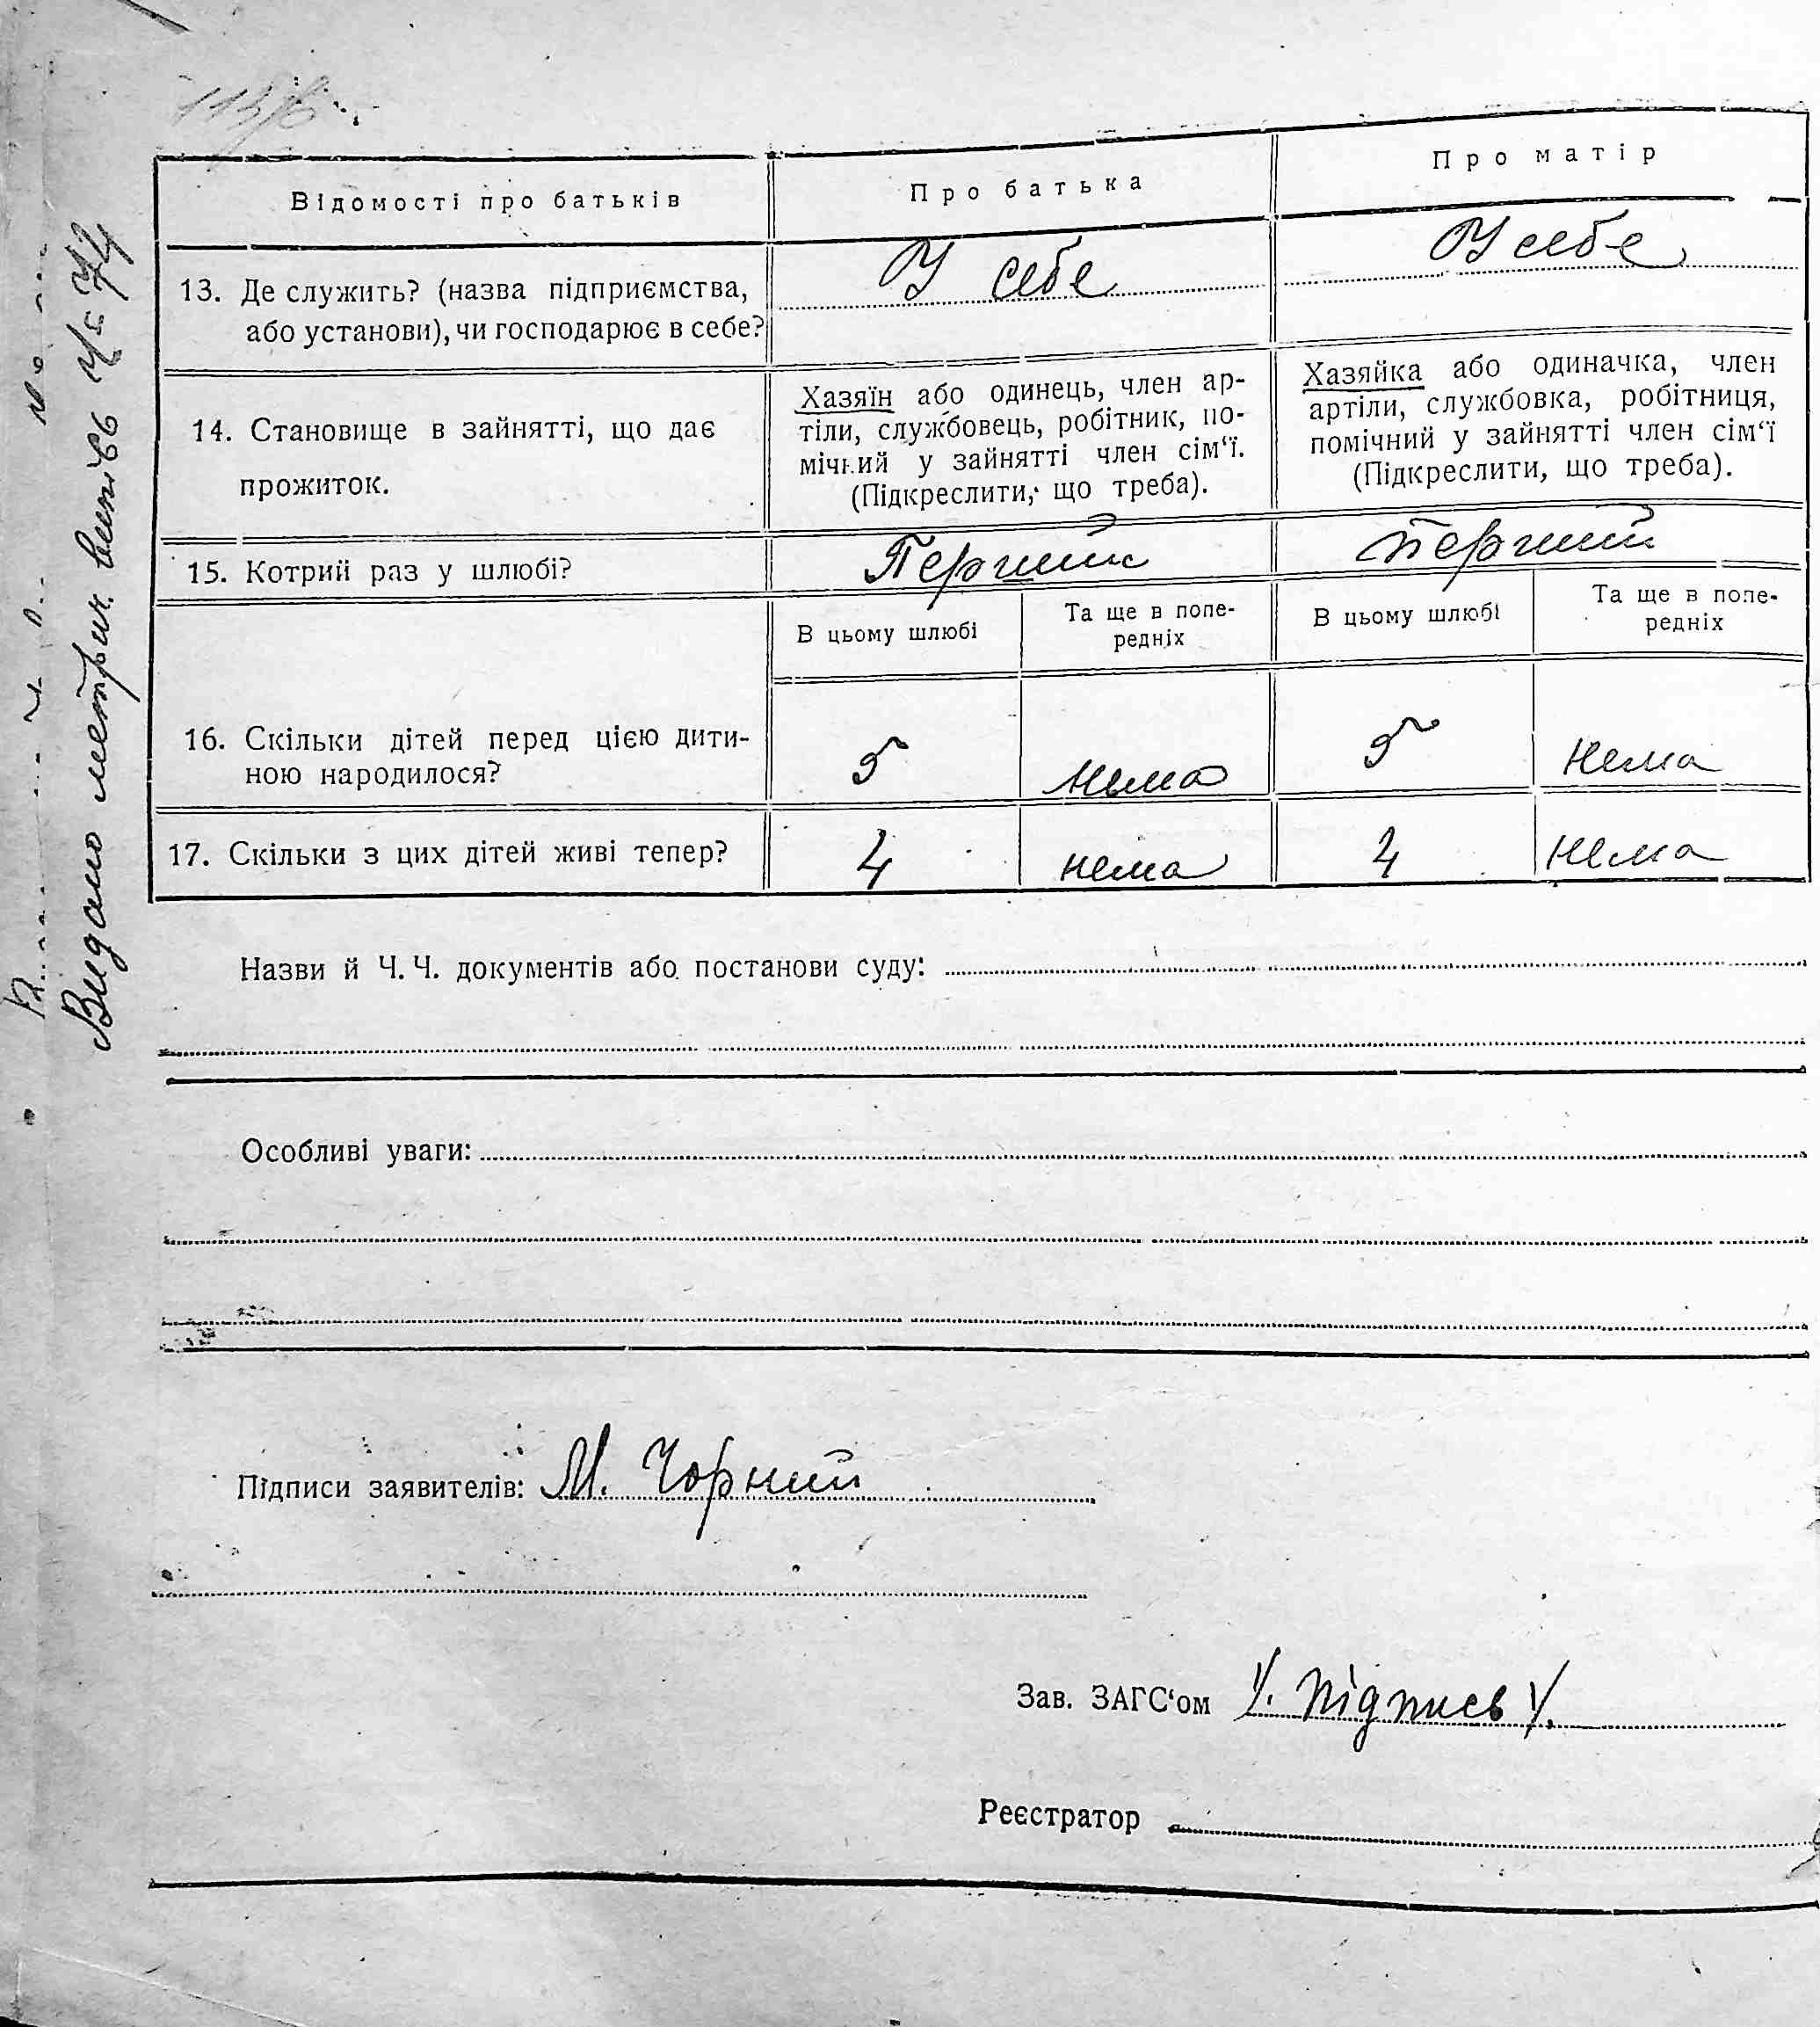 Відомості про батьків
Про батька
Про матір
13. Де служить? (назва підприємства,
або установи), чи господарює в себе?
У себе
У себе
14. Становище в зайнятті, що дає
прожиток.
Хазяїн або одинець, член ар-
тіли, службовець, робітник, по-
мічний у зайнятті член сім‘ї.
(Підкреслити, що треба).
Хазяйка або одиначка, член
артіли, службовка, робітниця,
помічний у зайнятті член сім‘ї
(Підкреслити, що треба).
15. Котрий раз у шлюбі?
Перший
Перший
В цьому шлюбі
Та ще в попе-
редніх
В цьому шлюбі
Та ще в попе-
редніх
16. Скільки дітей перед цією дити-
ною народилося?
5
нема
5
нема
17. Скільки з цих дітей живі тепер?
4
нема
4
нема
Назви й Ч. Ч. документів або постанови суду:
Особливі уваги:
Підписи заявителів: М. Чорний
Зав. ЗАГС‘ом /. підпись /.
Реєстратор
Видано метрик.